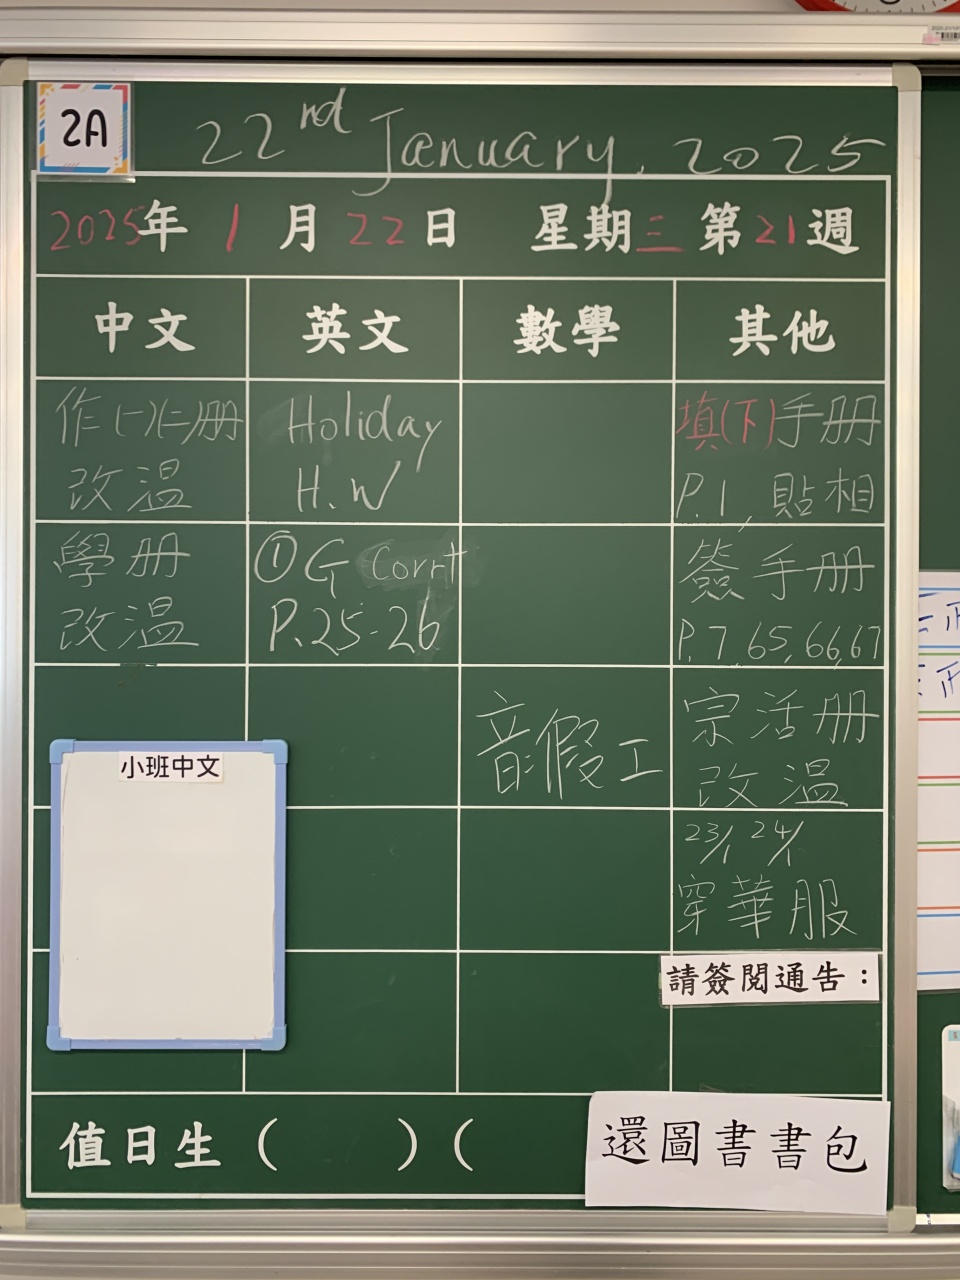 2A
22nd January, 2025
2025年 1 月 22 日 星期三 第21週
中文 英文 數學 其他
作(一)(二)册
改溫
Holiday
H.W
填(下)手册
P.1, 貼相
學册
改溫
①G Corrt
P.25-26
簽手册
P.7, 65, 66, 67
音假工
宗活册
改溫
小班中文
23/1 24/1
穿華服
請簽閱通告：
值日生 ( ) (
還圖書書包